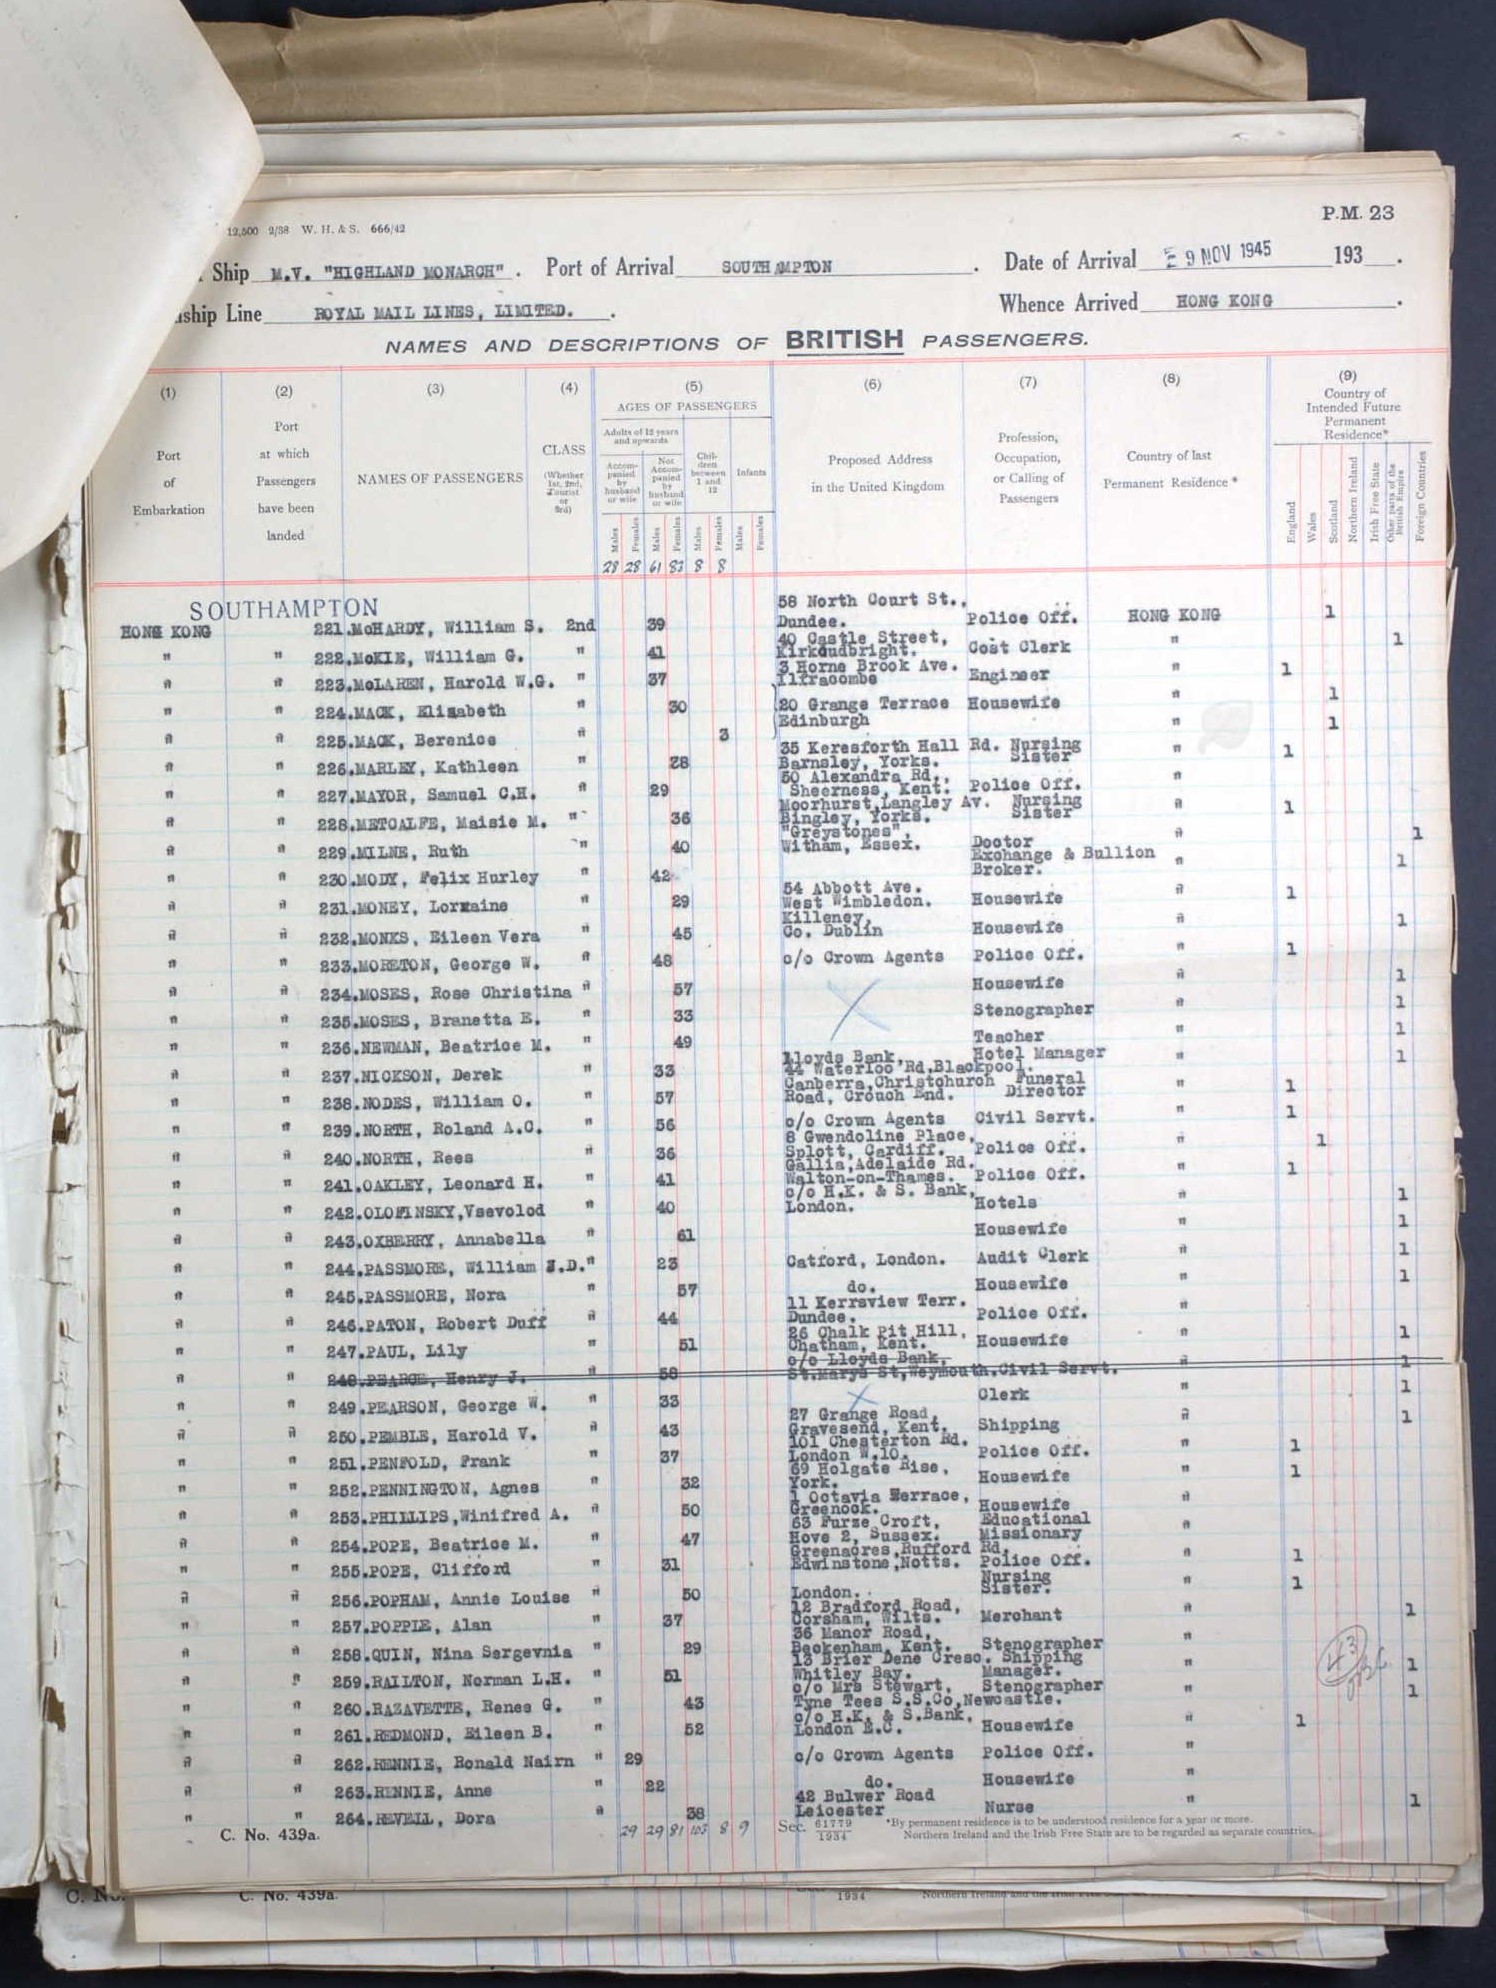 P.M. 23
12,500 2/38 W. H. & S. 666/42
Ship M.V. "HIGHLAND MONARCH". Port of Arrival SOUTHAMPTON. Date of Arrival 9 NOV 1945 193 .
ship Line ROYAL MAIL LINES, LIMITED. . Whence Arrived HONG KONG .
NAMES AND DESCRIPTIONS OF BRITISH PASSENGERS.
(1) (2) (3) (4) (5) (6) (7) (8) (9)
Port of Embarkation
Port at which Passengers have been landed
NAMES OF PASSENGERS
CLASS (Whether 1st, 2nd, Tourist or 3rd)
AGES OF PASSENGERS
Adults of 12 years and upwards
Accompanied by husband or wife
Not Accompanied by husband or wife
Children between 1 and 12
Infants
Males Females Males Females Males Females Males Females
28 28 61 83 8 8
Proposed Address in the United Kingdom
Profession, Occupation, or Calling of Passengers
Country of last Permanent Residence *
Country of Intended Future Permanent Residence*
England Wales Scotland Northern Ireland Irish Free State Other parts of the British Empire Foreign Countries
SOUTHAMPTON
HONG KONG 221.McHARDY, William S. 2nd 39 58 North Court St., Dundee. Police Off. HONG KONG 1
" " 222.McKIE, William G. " 41 40 Castle Street, Kirkcudbright. Cost Clerk " 1
" " 223.McLAREN, Harold W.G. " 37 3 Horne Brook Ave. Ilfracombe Engineer " 1
" " 224.MACK, Elizabeth " 30 20 Grange Terrace Edinburgh Housewife " 1
" " 225.MACK, Berenice " 3 " 1
" " 226.MARLEY, Kathleen " 28 35 Keresforth Hall Rd. Barnsley, Yorks. Nursing Sister " 1
" " 227.MAYOR, Samuel C.H. " 29 50 Alexandra Rd., Sheerness, Kent. Police Off. "
" " 228.METCALFE, Maisie M. " 36 Moorhurst,Langley Av. Bingley, Yorks. Nursing Sister " 1
" " 229.MILNE, Ruth " 40 "Greystones", Witham, Essex. Doctor " 1
" " 230.MODY, Felix Hurley " 42 Exchange & Bullion Broker. " 1
" " 231.MONEY, Lorraine " 29 54 Abbott Ave. West Wimbledon. Housewife " 1
" " 232.MONKS, Eileen Vera " 45 Killeney, Co. Dublin Housewife " 1
" " 233.MORETON, George W. " 48 c/o Crown Agents Police Off. " 1
" " 234.MOSES, Rose Christina " 57 Housewife " 1
" " 235.MOSES, Branetta E. " 33 Stenographer " 1
" " 236.NEWMAN, Beatrice M. " 49 Teacher " 1
" " 237.NICKSON, Derek " 33 Lloyds Bank, 44 Waterloo Rd.Blackpool. Hotel Manager " 1
" " 238.NODES, William O. " 57 Canberra,Christchurch Road, Crouch End. Funeral Director " 1
" " 239.NORTH, Roland A.C. " 56 c/o Crown Agents Civil Servt. " 1
" " 240.NORTH, Rees " 36 8 Gwendoline Place, Splott, Cardiff. Police Off. " 1
" " 241.OAKLEY, Leonard H. " 41 Gallia,Adelaide Rd. Walton-on-Thames. Police Off. " 1
" " 242.OLOFINSKY,Vsevolod " 40 c/o H.K. & S. Bank, London. Hotels " 1
" " 243.OXBERRY, Annabella " 61 Housewife " 1
" " 244.PASSMORE, William J.D." 23 Catford, London. Audit Clerk " 1
" " 245.PASSMORE, Nora " 57 do. Housewife " 1
" " 246.PATON, Robert Duff " 44 11 Kerrsview Terr. Dundee. Police Off. "
" " 247.PAUL, Lily " 51 26 Chalk Pit Hill, Chatham, Kent. Housewife " 1
" " 248.PEARCE, Henry J. " 58 c/o Lloyds Bank, St.Marys St,Weymouth.Civil Servt. " 1
" " 249.PEARSON, George W. " 33 Clerk " 1
" " 250.PEMBLE, Harold V. " 43 27 Grange Road, Gravesend, Kent. Shipping " 1
" " 251.PENFOLD, Frank " 37 101 Chesterton Rd. London W.10. Police Off. " 1
" " 252.PENNINGTON, Agnes " 32 69 Holgate Rise, York. Housewife " 1
" " 253.PHILLIPS,Winifred A. " 50 1 Octavia Terrace, Greenock. Housewife "
" " 254.POPE, Beatrice M. " 47 63 Furze Croft, Hove 2, Sussex. Educational Missionary "
" " 255.POPE, Clifford " 31 Greenacres,Rufford Rd. Edwinstone,Notts. Police Off. " 1
" " 256.POPHAM, Annie Louise " 50 London. Nursing Sister. " 1
" " 257.POPPLE, Alan " 37 12 Bradford Road, Corsham, Wilts. Merchant " 1
" " 258.QUIN, Nina Sergevnia " 29 36 Manor Road, Beckenham, Kent. Stenographer "
" " 259.RAILTON, Norman L.H. " 51 13 Brier Dene Cresc. Whitley Bay. Shipping Manager. " 1
" " 260.RAZAVETTE, Renee G. " 43 c/o Mrs Stewart, Tyne Tees S.S.Co,Newcastle. Stenographer " 1
" " 261.REDMOND, Eileen B. " 52 c/o H.K. & S.Bank, London E.C. Housewife " 1
" " 262.RENNIE, Ronald Nairn " 29 c/o Crown Agents Police Off. "
" " 263.RENNIE, Anne " 22 do. Housewife "
" " 264.REVELL, Dora " 38 42 Bulwer Road Leicester Nurse " 1
43
C. No. 439a. 29 29 81 103 8 9 Sec. 61779/1934
*By permanent residence is to be understood residence for a year or more.
Northern Ireland and the Irish Free State are to be regarded as separate countries.
C. No. C. No. 439a. 1934